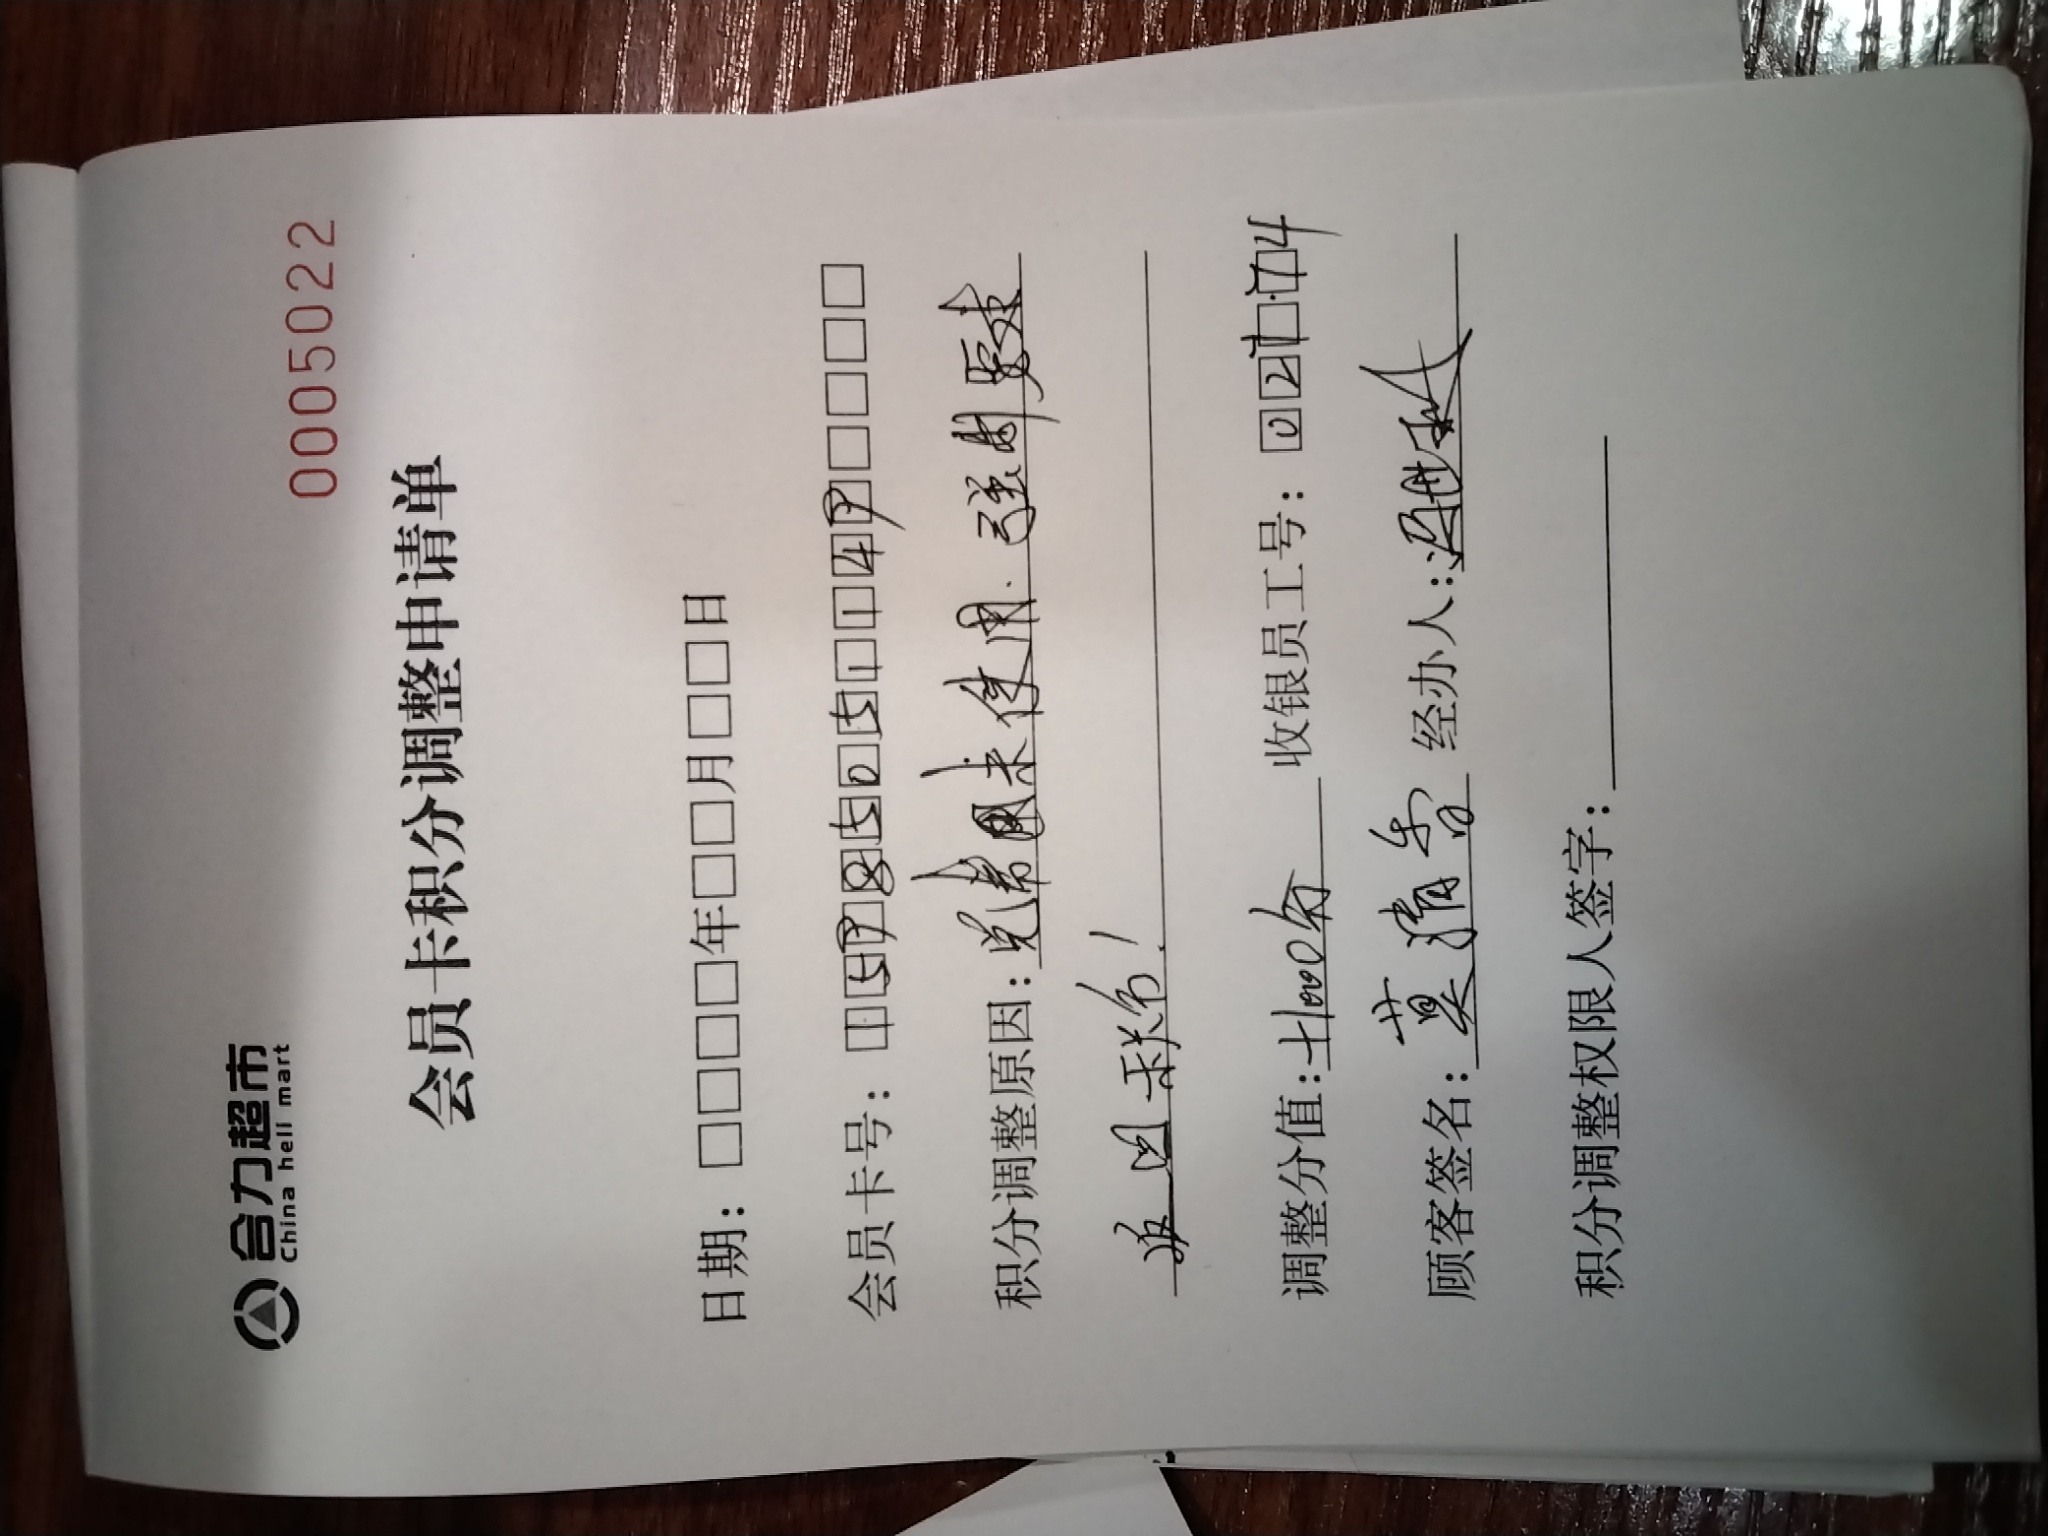 合力超市
China hell mart
0005022
会员卡积分调整申请单
日期：□□□□年□□月□□日
会员卡号：15985051149
积分调整原因：兑券未使用.强制
返回积分！
调整分值：+1000分 收银员工号：02774
顾客签名： 经办人：
积分调整权限人签字：